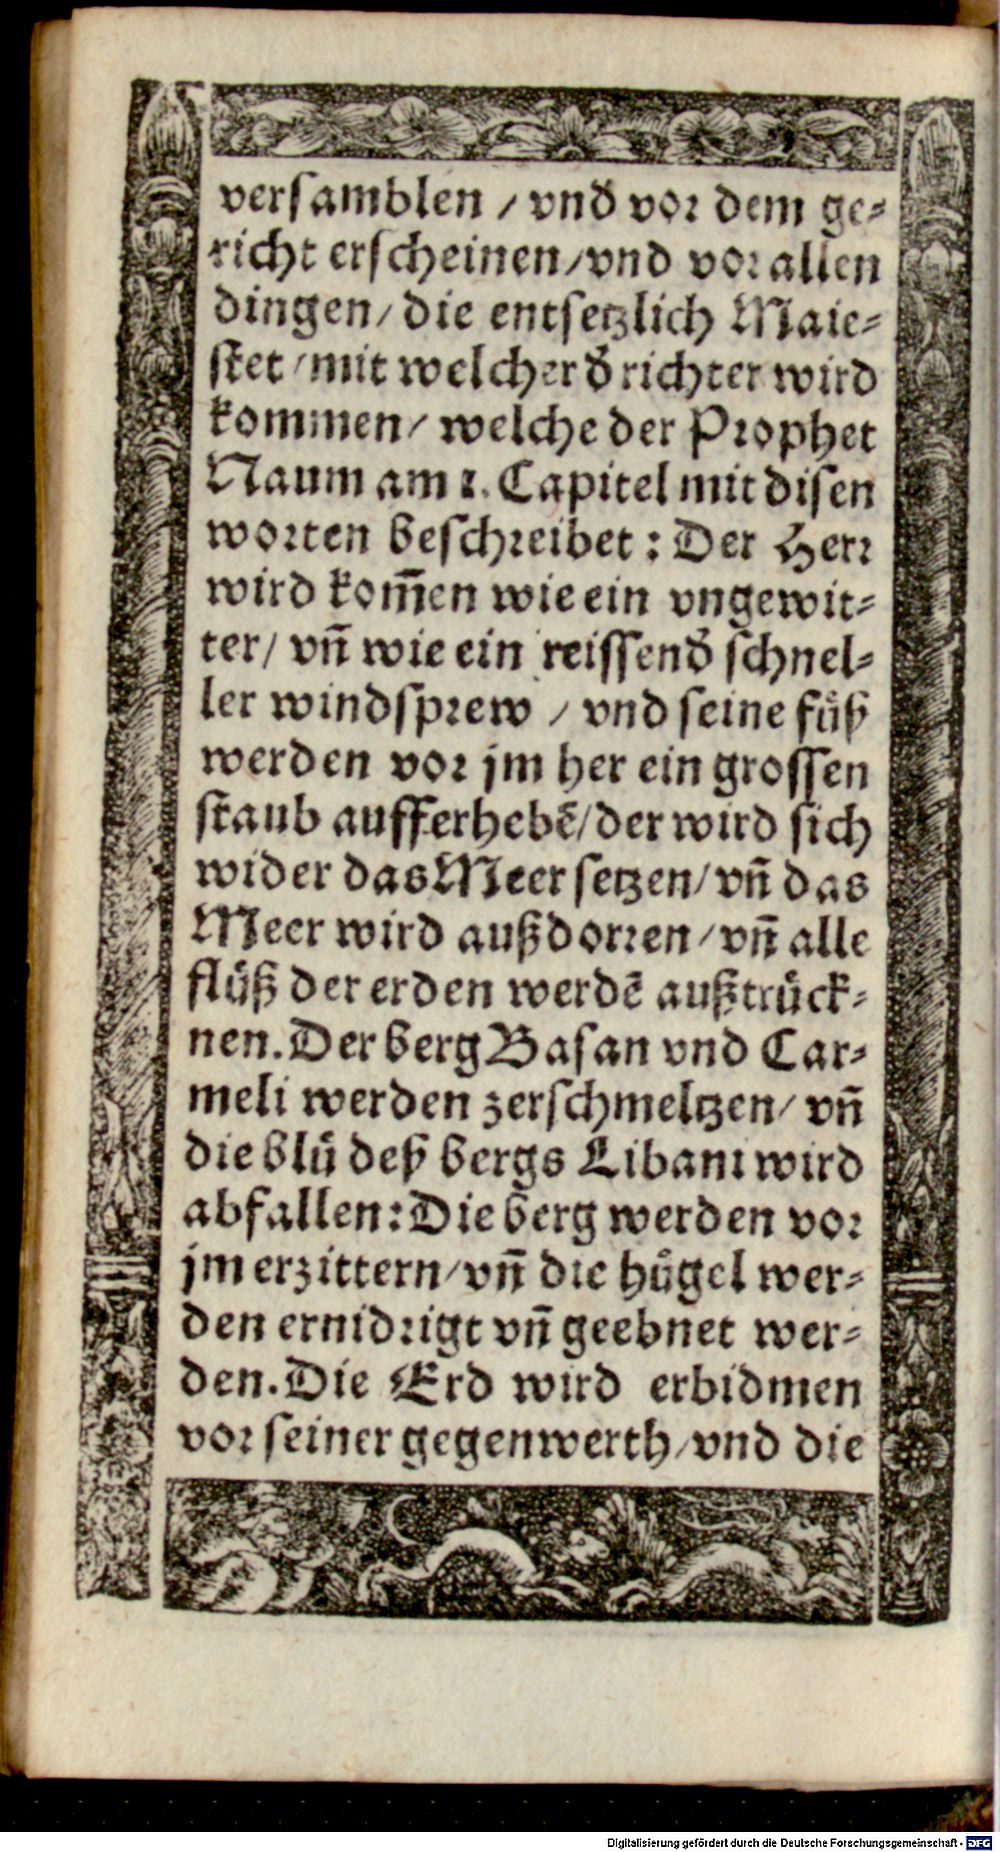 versamblen / vnd vor dem ge⸗
richt erscheinen / vnd vor allen
dingen / die entsetzlich Maie⸗
stet / mit welcher d̕ richter wird
kommen / welche der Prophet
Naum am 1. Capitel mit disen
worten beschreibet : Der Herr
wird kom̄en wie ein vngewit⸗
ter / vn̄ wie ein reissend̕ schnel⸗
ler windsprew / vnd seine fuͤß
werden vor jm her ein grossen
staub aufferhebē / der wird sich
wider das Meer setzen / vn̄ das
Meer wird außdorren / vn̄ alle
fluͤß der erden werdē außtruͤck⸗
nen. Der berg Basan vnd Car⸗
meli werden zerschmeltzen / vn̄
die bluͤ deß bergs Libani wird
abfallen : Die berg werden vor
jm erzittern / vn̄ die huͤgel wer⸗
den ernidrigt vn̄ geebnet wer⸗
den. Die Erd wird erbidmen
vor seiner gegenwerth / vnd die
Digitalisierung gefördert durch die Deutsche Forschungsgemeinschaft - DFG